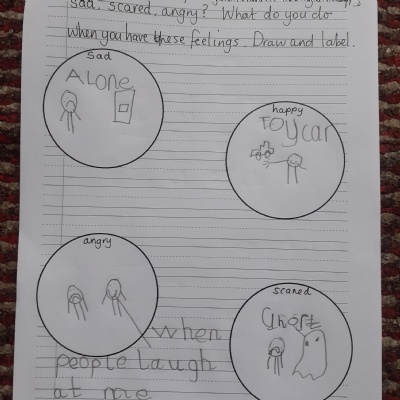 sad, scared, angry? What do you do
when you have these feelings. Draw and label.
sad
ALONE
happy
TOY car
angry
when
people laugh
at me
scared
Ghost